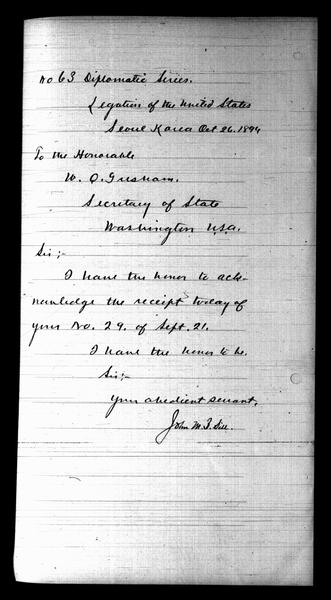 No 63 Diplomatic Series.
Legation of the United States
Seoul Korea Oct 26. 1894
To the Honorable
W. Q. Gresham.
Secretary of State
Washington U.S.A.
Sir;-
I have the honor to ack-
nowledge the receipt today of
your No. 29. of Sept. 21.
I have the honor to be.
Sir;-
Your obedient servant,
John M. B. Sill.